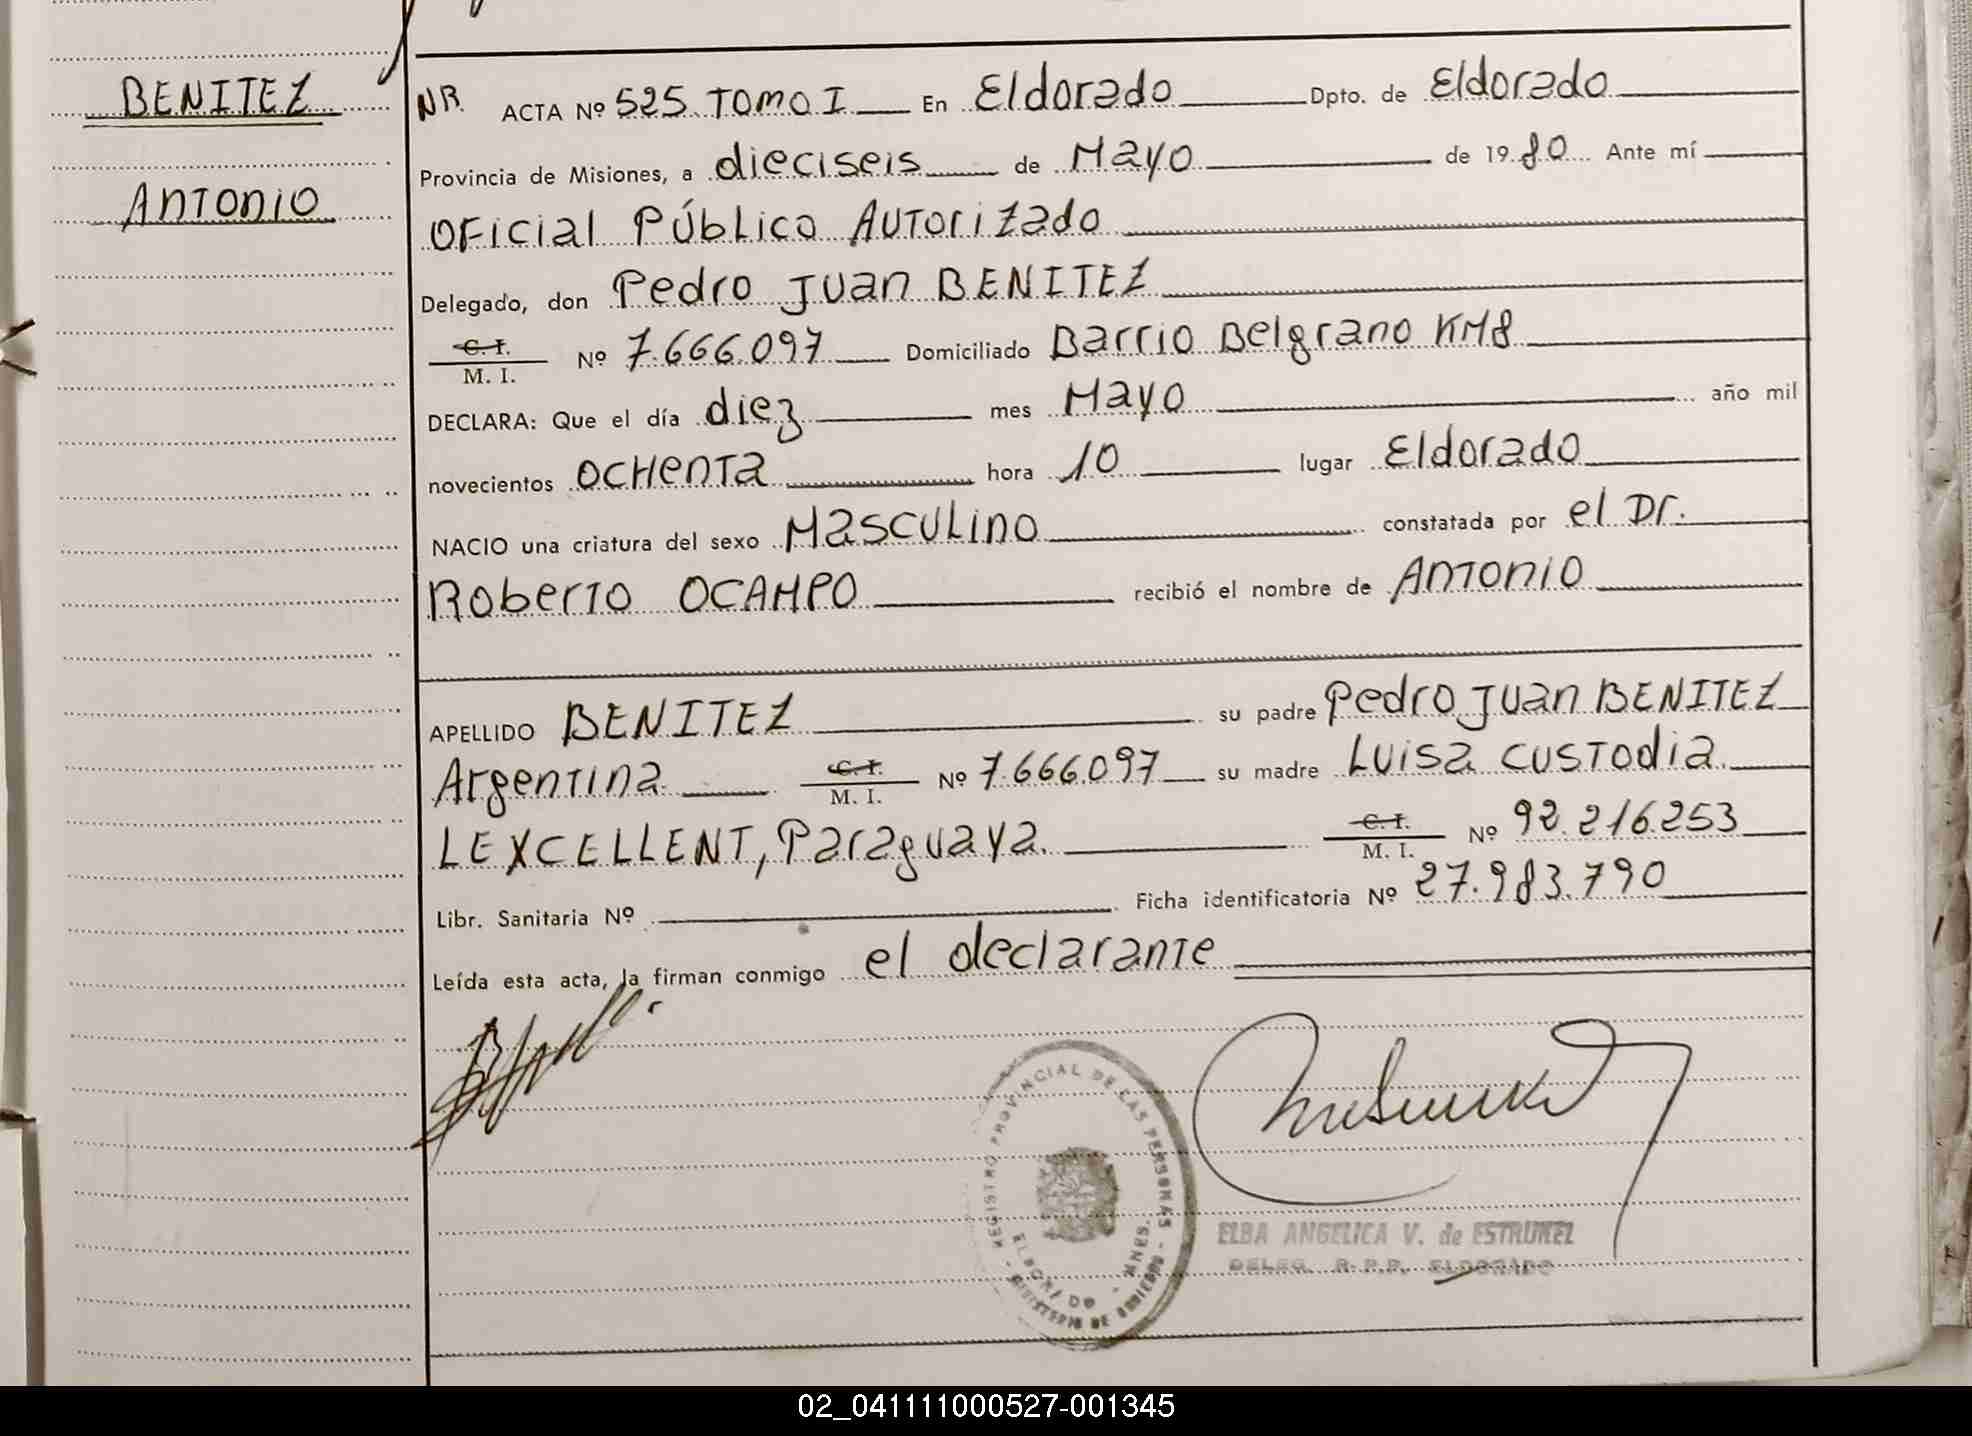 BENITEZ
ANTONIO
NR. ACTA Nº 525 TOMO I En Eldorado Dpto. de Eldorado
Provincia de Misiones, a dieciseis de Mayo de 1980 Ante mí
Oficial Público Autorizado
Delegado, don Pedro Juan BENITEZ
C. I.
M. I. Nº 7.666.097 Domiciliado Barrio Belgrano KM8
DECLARA: Que el día diez mes Mayo año mil
novecientos ochenta hora 10 lugar Eldorado
NACIO una criatura del sexo Masculino constatada por el Dr.
Roberto OCAMPO recibió el nombre de Antonio
APELLIDO BENITEZ su padre Pedro Juan BENITEZ
Argentina C. I.
M. I. Nº 7.666.097 su madre Luisa Custodia
LEXCELLENT, Paraguaya. C. I.
M. I. Nº 92.216.253
Libr. Sanitaria Nº Ficha identificatoria Nº 27.983.790
Leída esta acta, la firman conmigo el declarante
REGISTRO PROVINCIAL DE LAS PERSONAS
ELDORADO - MNES.
MINISTERIO DE GOBIERNO
ELBA ANGELICA V. de ESTRUKEL
DELEG. R.P.P. ELDORADO
02_041111000527-001345